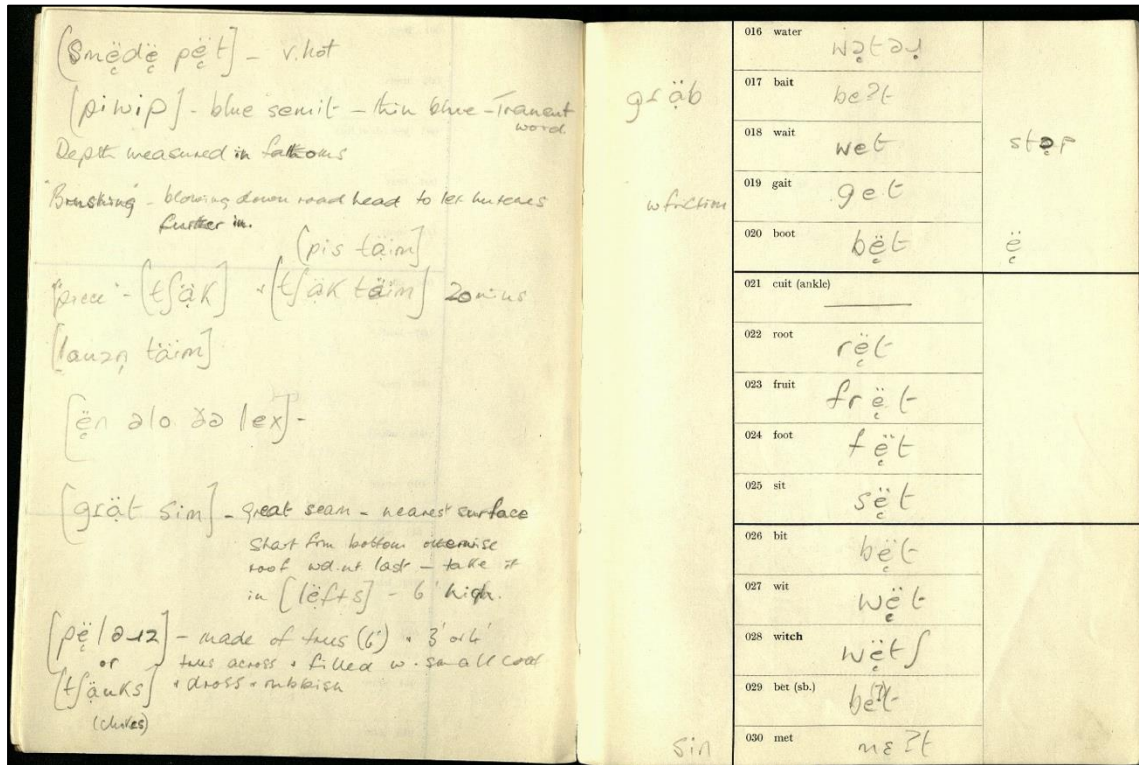 [smë̜dë̜ pë̜t] - v. hot
[piwip] - blue semit - thin blue - Tranent
word
Depth measured in fathoms
"Brushing" - blowing down road head to let hutches
further in.
[pis täim]
"piece" - [tʃạ̈k] + [tʃạ̈k täim] 20 mins
[lauəṇ täim]
[ë̜n əlo ðə lex] -
[grạ̈t sim] - great seam - nearest surface
start from bottom otherwise
roof wd. nt last - take it
in [lë̜fts] - 6' high.
[pë̜ləɹz] - made of trees (6') + 3' or 4'
or trees across + filled w. small coal
[tʃäuks] + dross + rubbish
(chokes)
gɹäb
w friction
sin
016 water wə̣təɹ
017 bait beʔt
018 wait wet
019 gait get
020 boot bë̜t ë̜
021 cuit (ankle) —
022 root rë̜t
023 fruit frë̜t
024 foot fë̜t
025 sit së̜t
026 bit bë̜t
027 wit wë̜t
028 witch wë̜tʃ
029 bet (sb.) be(ʔ)t
030 met mɛʔt